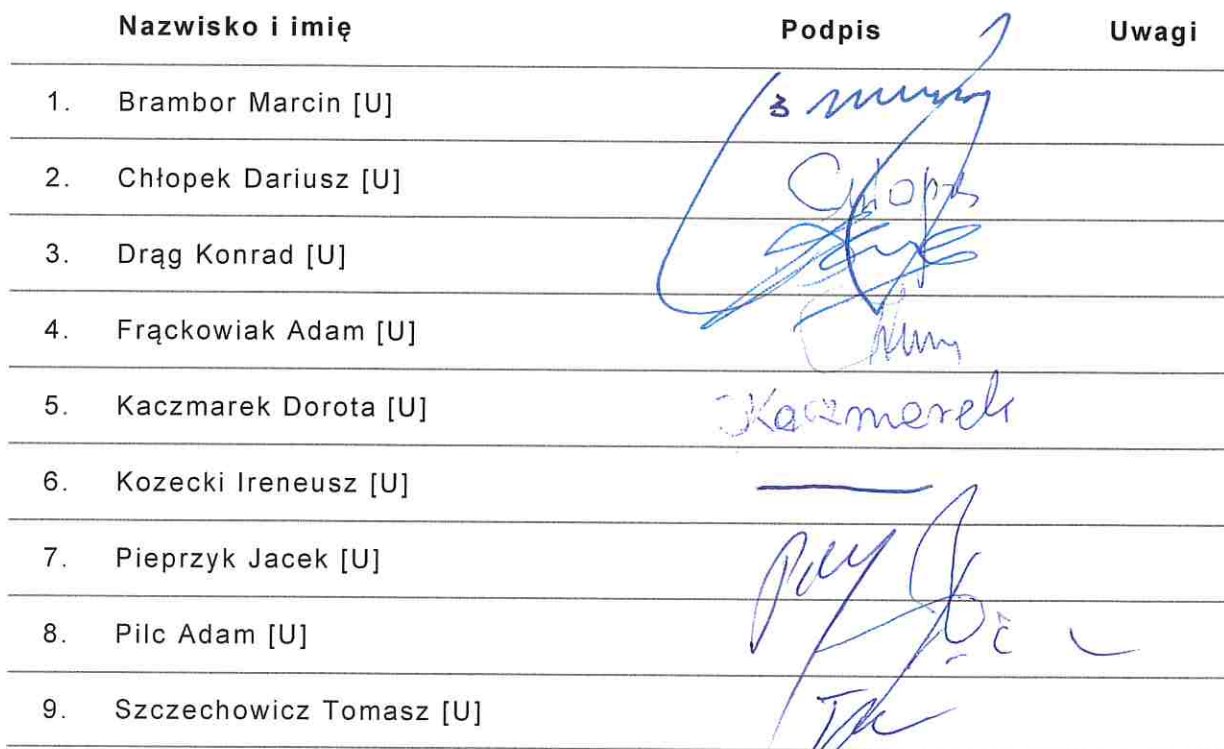 Nazwisko i imię Podpis Uwagi
1. Brambor Marcin [U]
2. Chłopek Dariusz [U]
3. Drąg Konrad [U]
4. Frąckowiak Adam [U]
5. Kaczmarek Dorota [U] Kaczmarek
6. Kozecki Ireneusz [U]
7. Pieprzyk Jacek [U]
8. Pilc Adam [U]
9. Szczechowicz Tomasz [U]